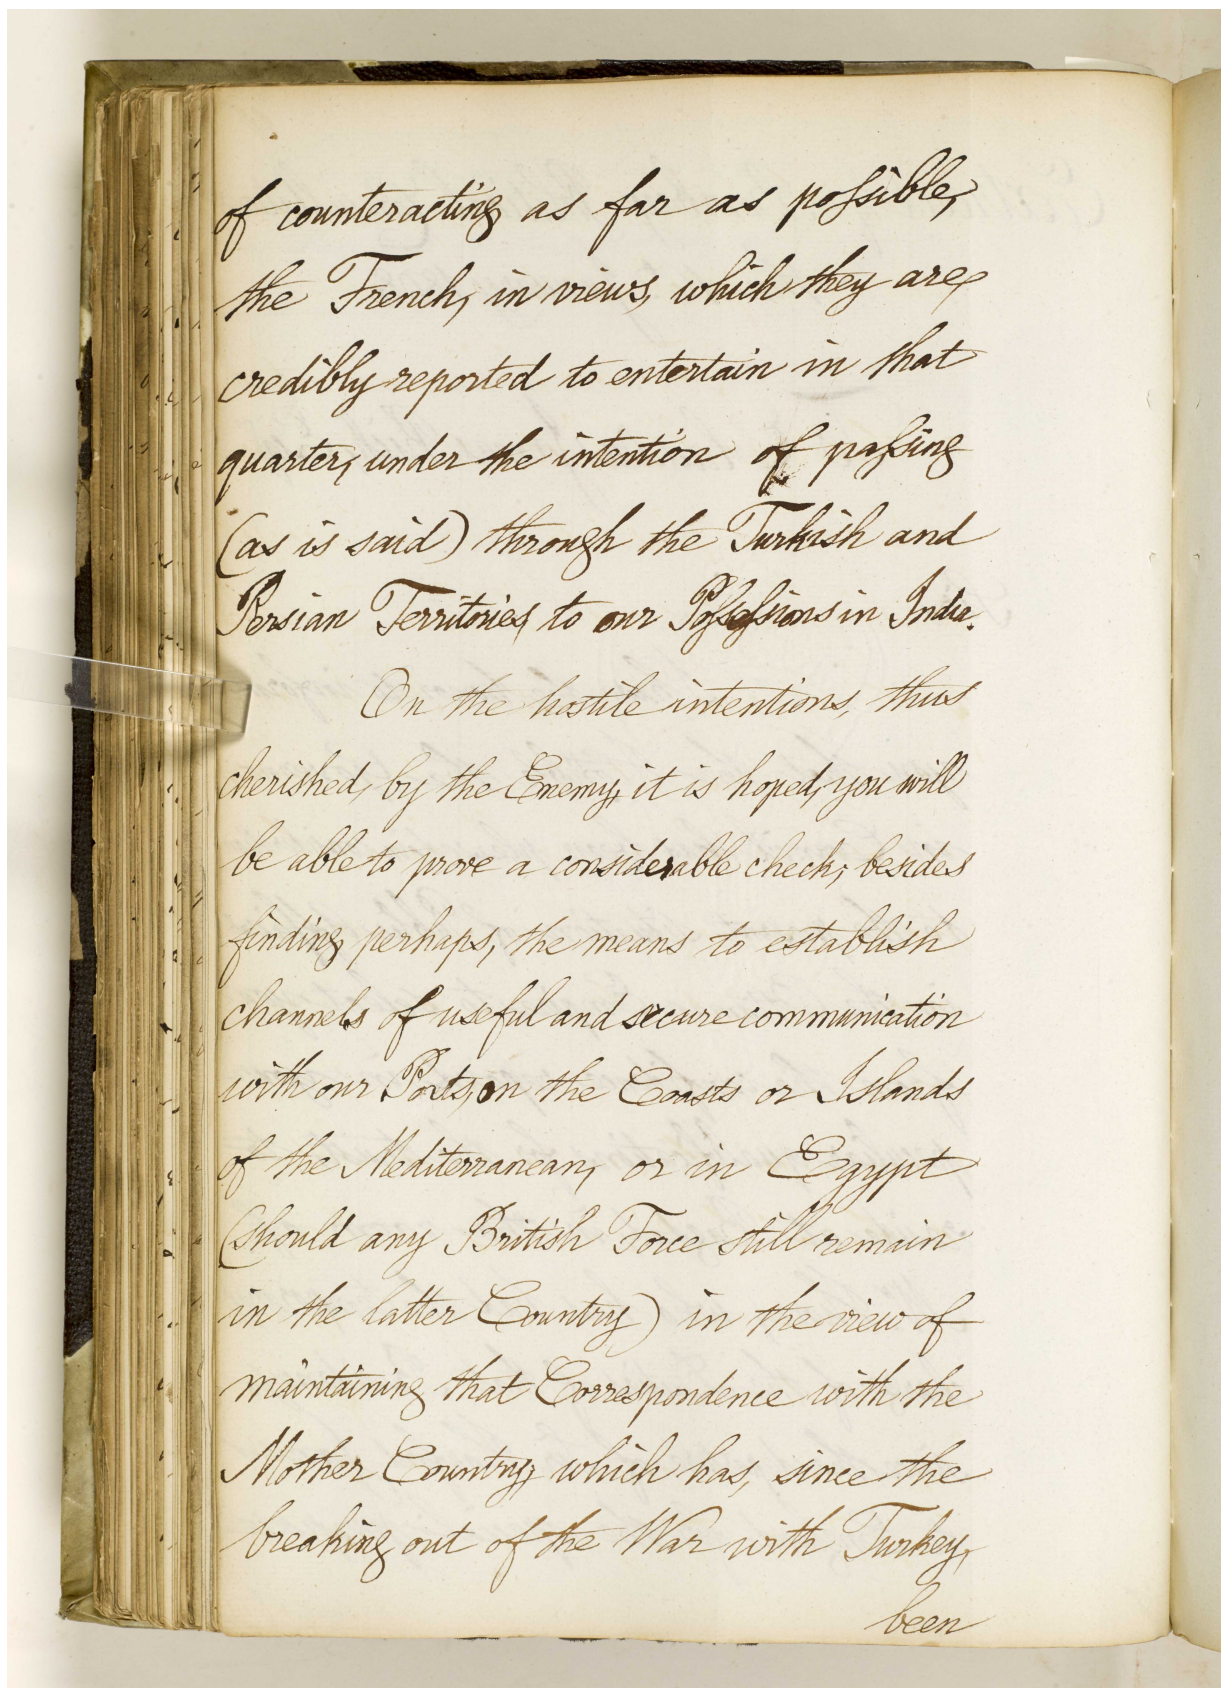 of counteracting as far as possible,
the French, in views, which they are,
credibly reported to entertain in that
quarter, under the intention of passing
(as is said) through the Turkish and
Persian Territories, to our Possessions in India.
On the hostile intentions, thus
cherished, by the Enemy, it is hoped, you will
be able to prove a considerable check; besides
finding, perhaps, the means to establish
channels of useful and secure communication
with our Posts, on the Coasts or Islands
of the Mediterranean, or in Egypt
(should any British Force still remain
in the latter Country) in the view of
maintaining that Correspondence with the
Mother Country, which has, since the
breaking out of the War with Turkey,
been